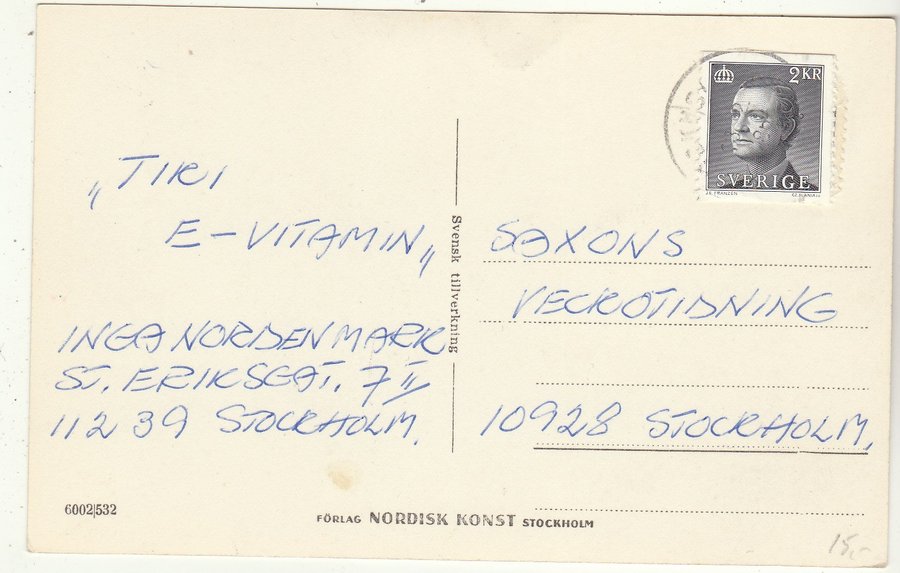 „TIRI
E-VITAMIN„
INGA NORDENMARK
ST. ERIKSGAT. 7 II
112 39 STOCKHOLM.
6002|532
Svensk tillverkning
2 KR
SVERIGE
SAXONS
VECKOTIDNING
10928 STOCKHOLM.
FÖRLAG NORDISK KONST STOCKHOLM
15,-